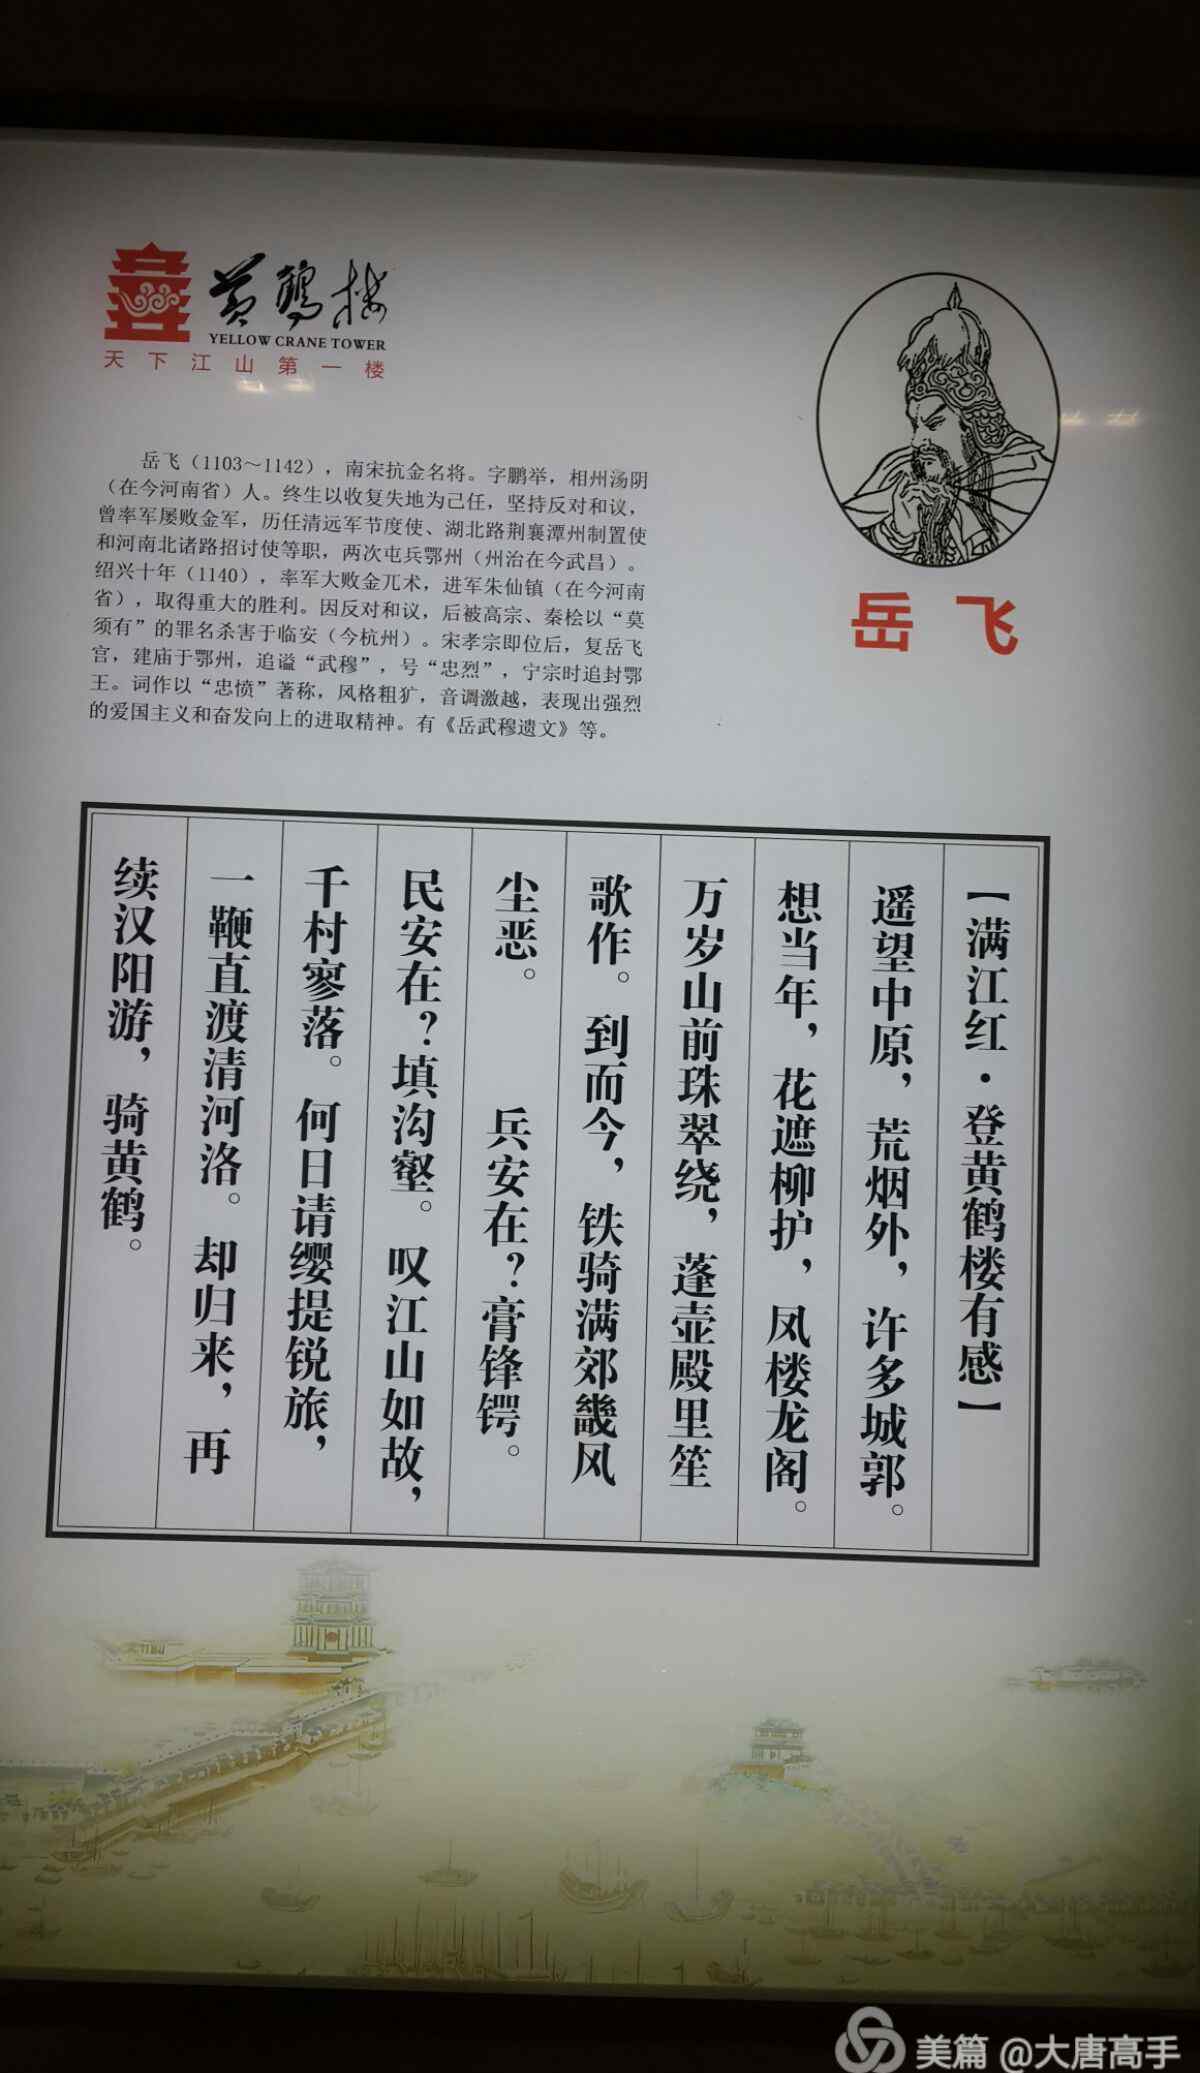 黄鹤楼
YELLOW CRANE TOWER
天下江山第一楼
岳飞
岳飞（1103～1142），南宋抗金名将。字鹏举，相州汤阴
（在今河南省）人。终生以收复失地为己任，坚持反对和议，
曾率军屡败金军，历任清远军节度使、湖北路荆襄潭州制置使
和河南北诸路招讨使等职，两次屯兵鄂州（州治在今武昌）。
绍兴十年（1140），率军大败金兀术，进军朱仙镇（在今河南
省），取得重大的胜利。因反对和议，后被高宗、秦桧以“莫
须有”的罪名杀害于临安（今杭州）。宋孝宗即位后，复岳飞
官，建庙于鄂州，追谥“武穆”，号“忠烈”，宁宗时追封鄂
王。词作以“忠愤”著称，风格粗犷，音调激越，表现出强烈
的爱国主义和奋发向上的进取精神。有《岳武穆遗文》等。
【满江红·登黄鹤楼有感】
遥望中原，荒烟外，许多城郭。
想当年，花遮柳护，凤楼龙阁。
万岁山前珠翠绕，蓬壶殿里笙
歌作。到而今，铁骑满郊畿风
尘恶。 兵安在？膏锋锷。
民安在？填沟壑。叹江山如故，
千村寥落。何日请缨提锐旅，
一鞭直渡清河洛。却归来，再
续汉阳游，骑黄鹤。
美篇 @大唐高手